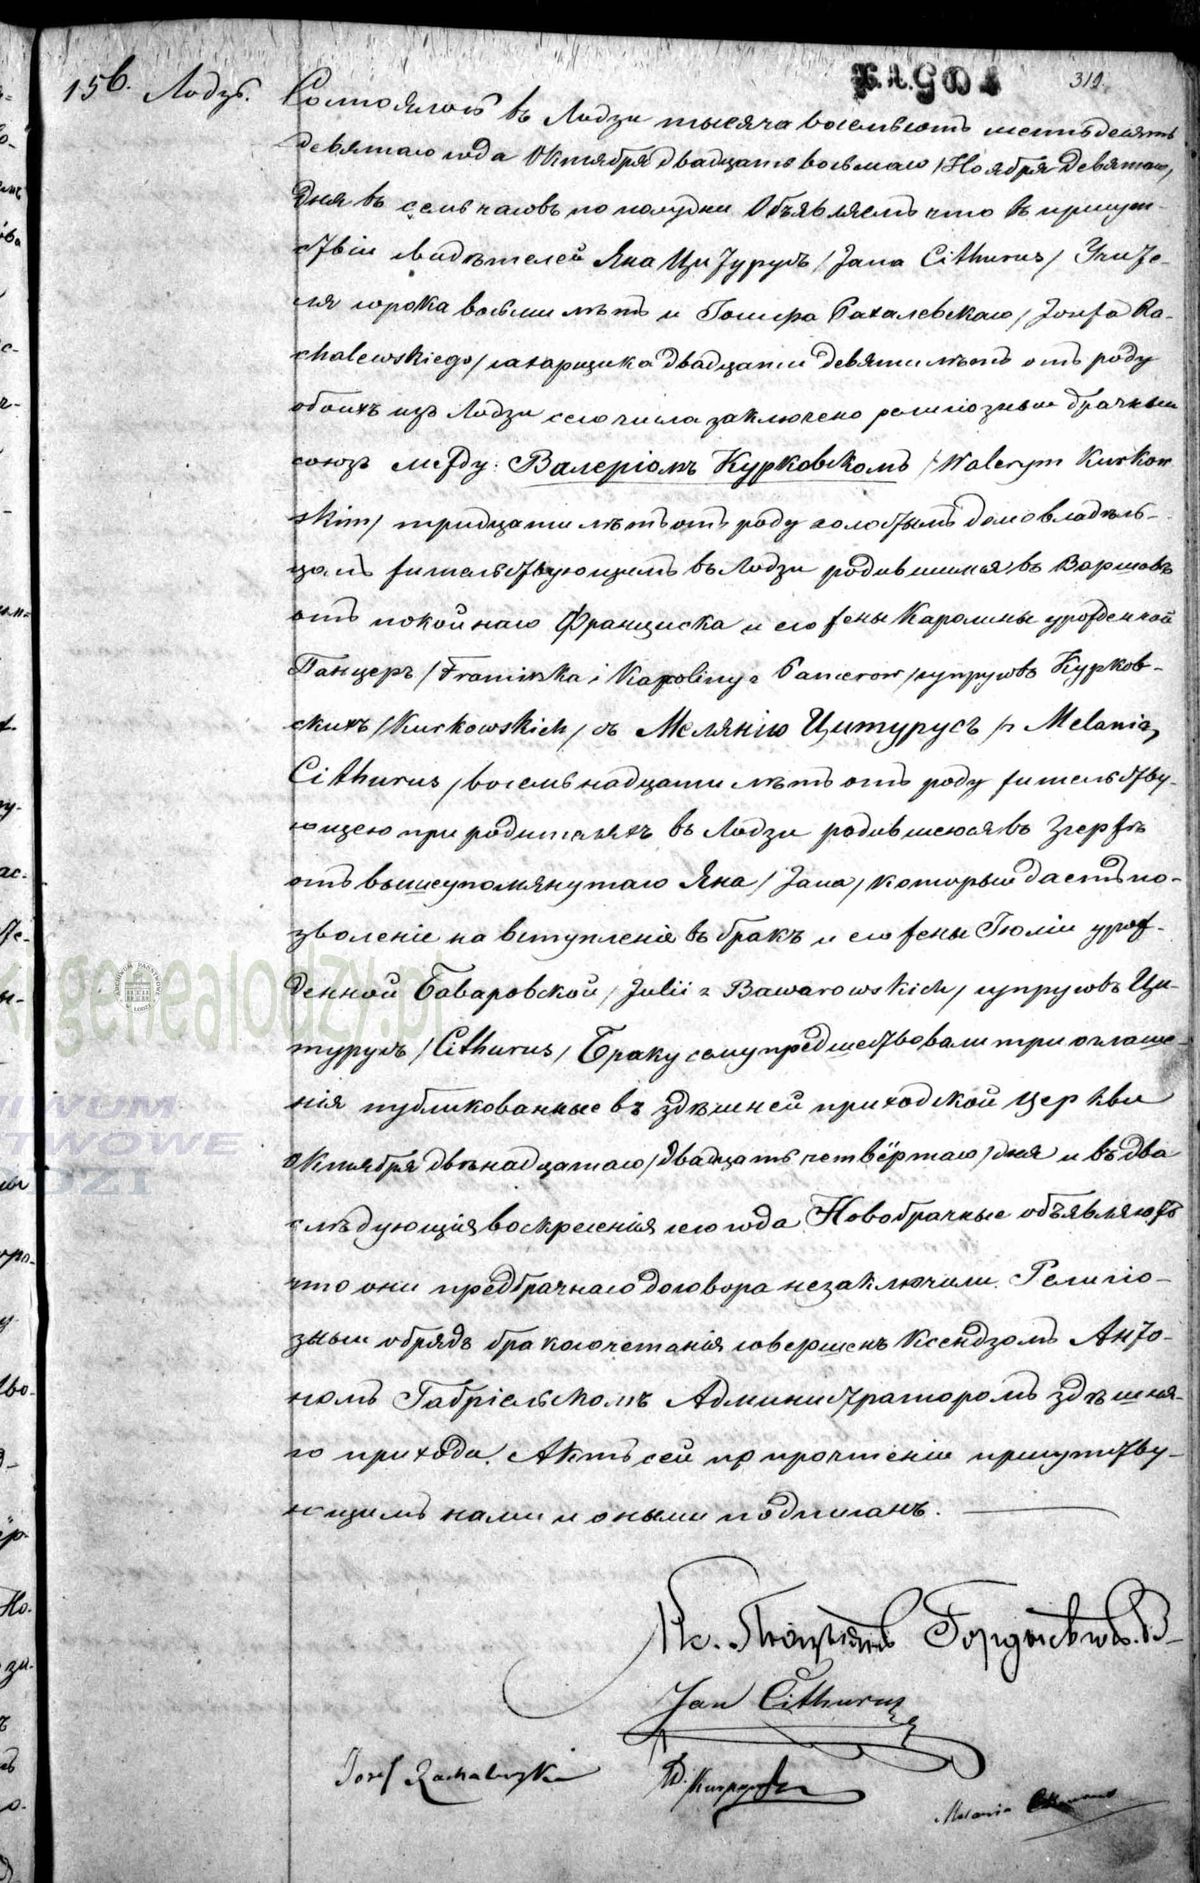 312.
156. Лодзь.
Состоялось въ Лодзи тысяча восемьсотъ шестьдесятъ
девятаго года Октября двадцать восьмаго /Ноября девятаго/
дня въ семь часовъ по полудни. Объявляемъ что въ присут-
ствіи свидѣтелей Яна Цитурусъ /Jana Cithurus/ Учите-
ля сорока восьми лѣтъ и Іосифа Рахалевскаго /Józefa Ra-
chalewskiego/ сахарщика двадцати девяти лѣтъ отъ роду
обоихъ изъ Лодзи сего числа заключено религіозный брачный
союзъ между: Валеріомъ Курковскомъ /Walerym Kurkow
skim/ тридцати лѣтъ отъ роду холостымъ домовладѣль-
цомъ жительствующимъ въ Лодзи родившимся въ Варшавѣ
отъ покойнаго Франциска и его жены Каролины урожденной
Панцеръ /Franciszka i Karoliny z Pancerow/ супруговъ Курков-
скихъ /Kurkowskich/ съ Мелянію Цитурусъ /z Melanią
Cithurus/ восемьнадцати лѣтъ отъ роду жительству-
ющею при родителяхъ въ Лодзи родившеюся въ Згержѣ
отъ вышеупомянутаго Яна /Jana/ который даетъ по-
зволеніе на вступленіе въ бракъ и его жены Юліи урож-
денной Баваровской /Julii z Bawarowskich/ супруговъ Ци-
турусъ /Cithurus/ Браку сему предшествовали три оглаше-
нія публикованные въ здѣшней приходской Церкви
Октября двѣнадцатаго /двадцать четвёртаго/ дня и въ два
слѣдующія воскресенія сего года. Новобрачные объявляютъ
что они предбрачнаго договора незаключили. Религіо-
зный обрядъ бракосочетанія совершенъ Ксендзомъ Анто-
номъ Габріельскомъ Администраторомъ здѣшня-
го прихода. Актъ сей по прочтеніи присутству-
ющимъ нами и оными подписанъ.
Кс.
Jan Cithurus
Józef Rachalewski
Melania Cithurus
genealodzy.pl
ARCHIWUM PAŃSTWOWE
IWUM
TWOWE
DZI